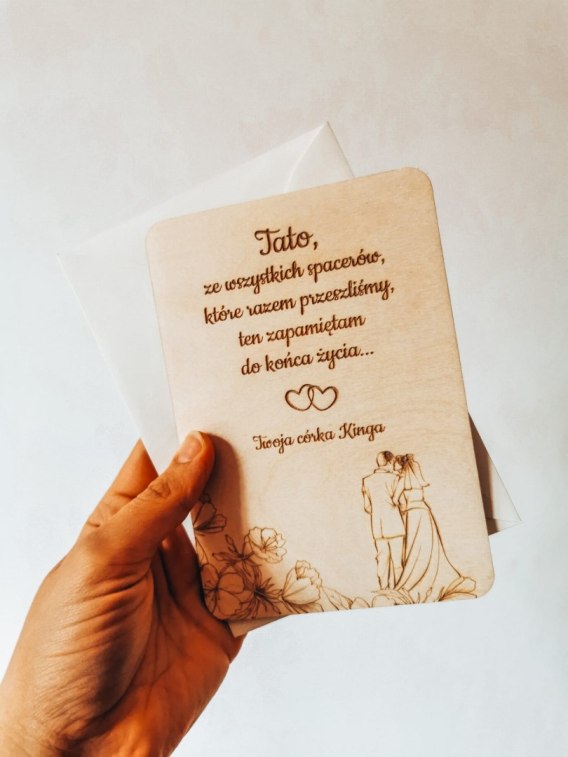 Tato,
ze wszystkich spacerów,
które razem przeszliśmy,
ten zapamiętam
do końca życia...
Twoja córka Kinga